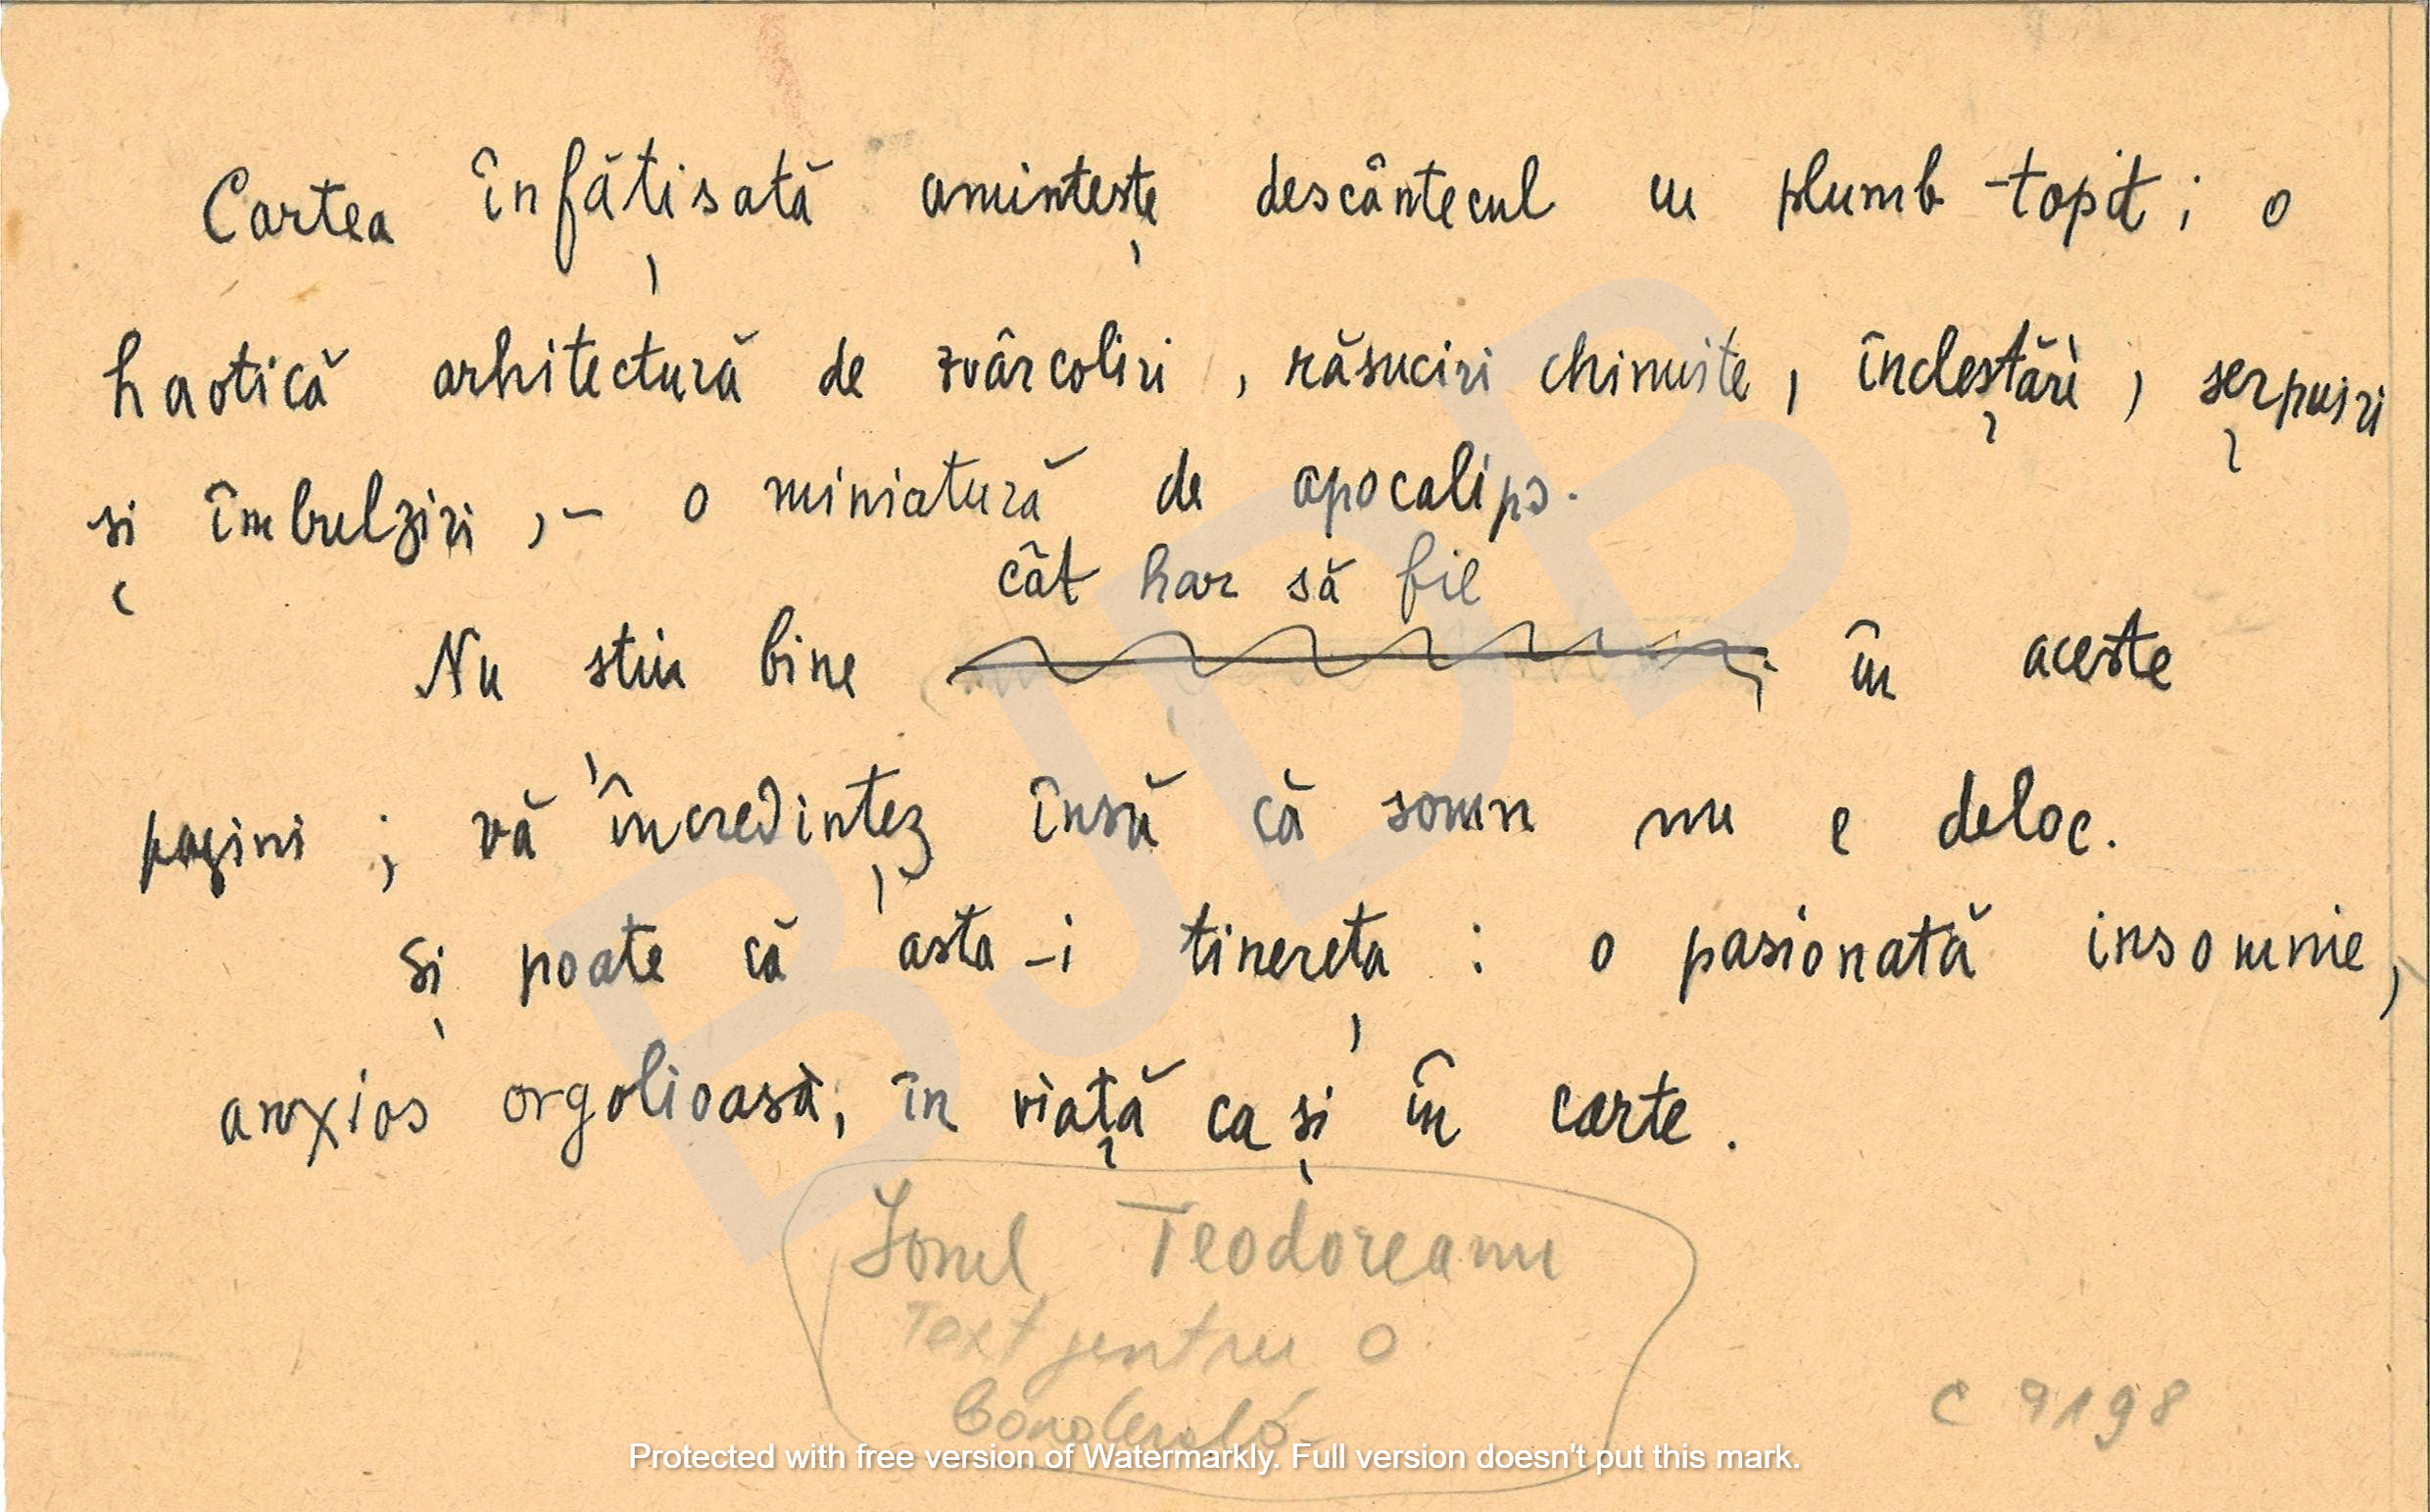 Cartea înfățisată amintește descântecul cu plumb-topit; o
haotică arhitectură de zvârcoliri, răsuciri chinuite, încleștări, șerpuiri
și îmbulziri, - o miniatură de apocalips.
cât har să fie
Nu stiu bine în aceste
pagini; vă încredințez însă că somn nu e deloc.
Și poate că asta-i tinerața: o pasionată insomnie,
anxios orgolioasă, în viață ca și în carte.
Ionel Teodoreanu
Text pentru o
banderolă
C 9198
BJDB
Protected with free version of Watermarkly. Full version doesn't put this mark.